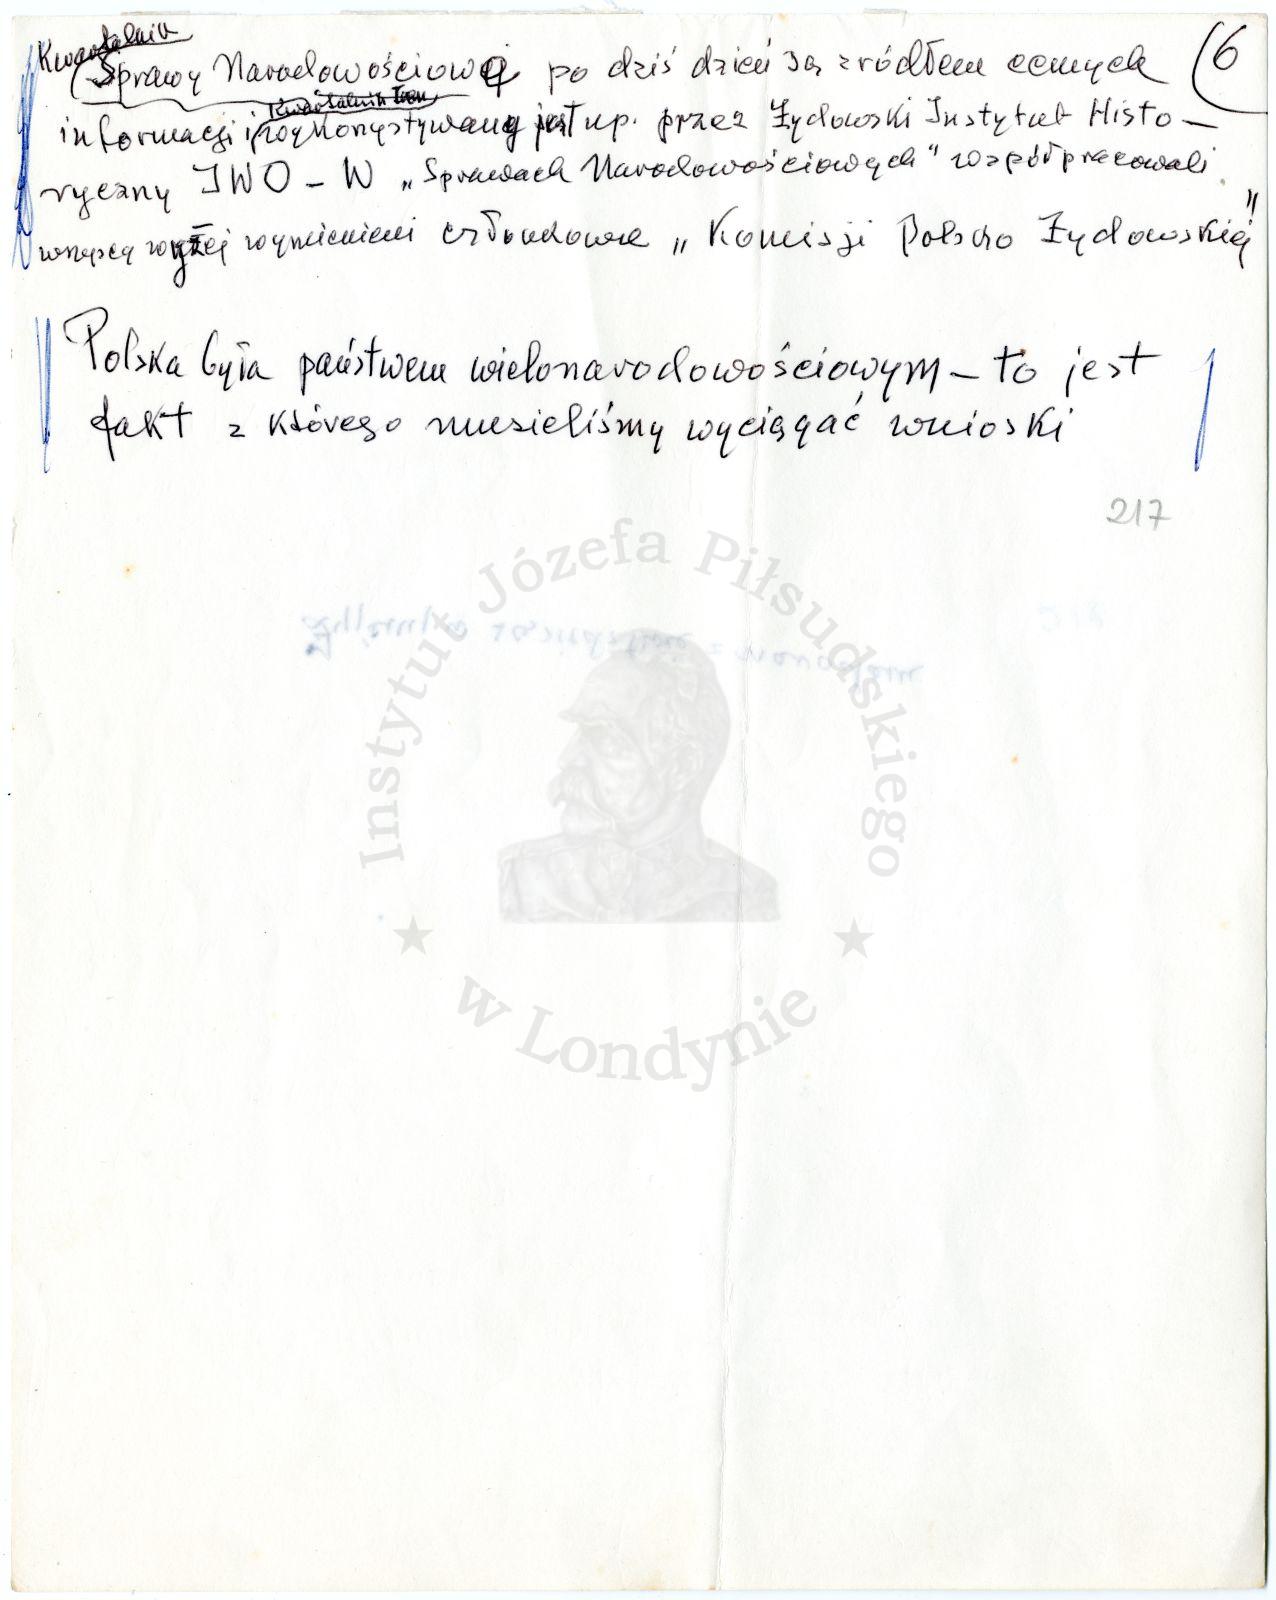 Kwartalnik
Sprawy Narodowościowe po dziś dzień są źródłem cennych (6
Kwartalnik ten
informacji i wykorzystywany jest np. przez Żydowski Instytut Histo-
ryczny IWO - W „Sprawach Narodowościowych" współpracowali
wszyscy wyżej wymienieni członkowie „Komisji Polsko Żydowskiej"
Polska była państwem wielonarodowościowym - to jest
fakt z którego musieliśmy wyciągać wnioski
217
Instytut Józefa Piłsudskiego
w Londynie